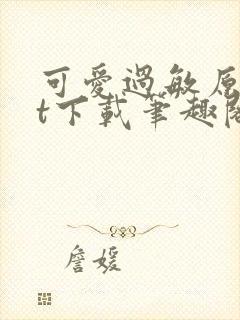 可愛過敏原
t下載筆趣閣
詹媛